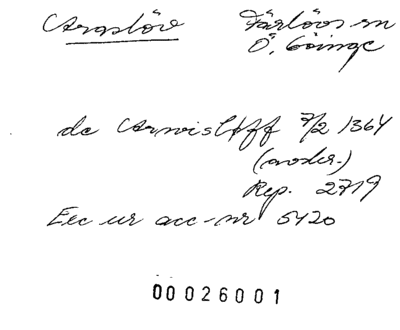 Araslöv Färlövs sn
Ö. Göinge
de Arnisløff 7/2 1364
(avskr.)
Rep. 2719
Exc ur acc-nr 5420
00026001